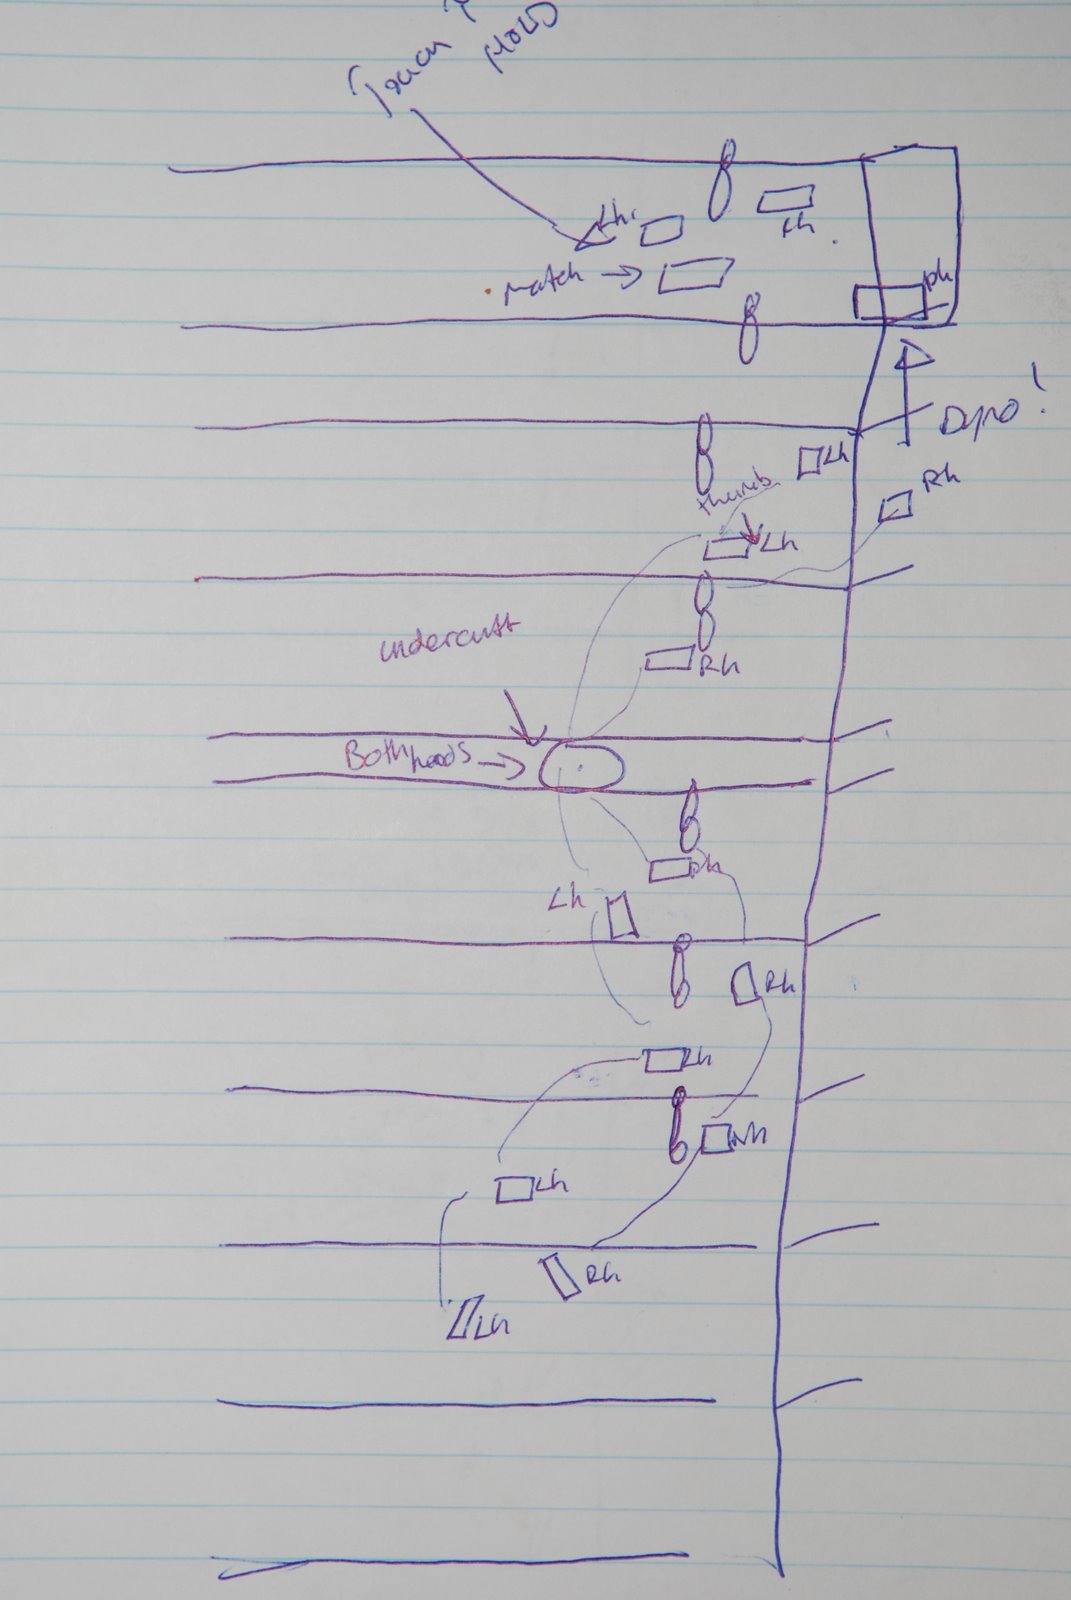 HOLD
Lh.
Rh
Match
Rh
Dyno!
Lh
Rh
thumb
Lh
undercutt
Rh
Both hands
Rh
Lh
Rh
Lh
Rh
Lh
Rh
Lh